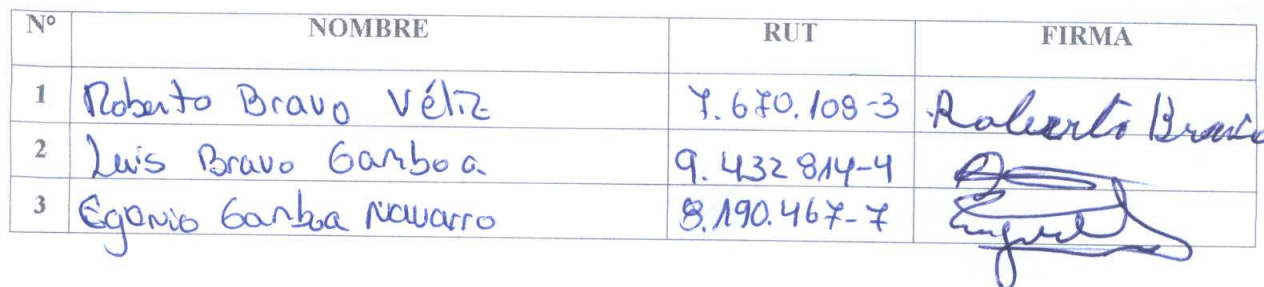 Nº NOMBRE RUT FIRMA
1 Roberto Bravo Véliz 7.670.109-3 Roberto Bravo
2 Luis Bravo Gamboa 9.432 814-4
3 Egenio Gamboa Navarro 8.190.467-7